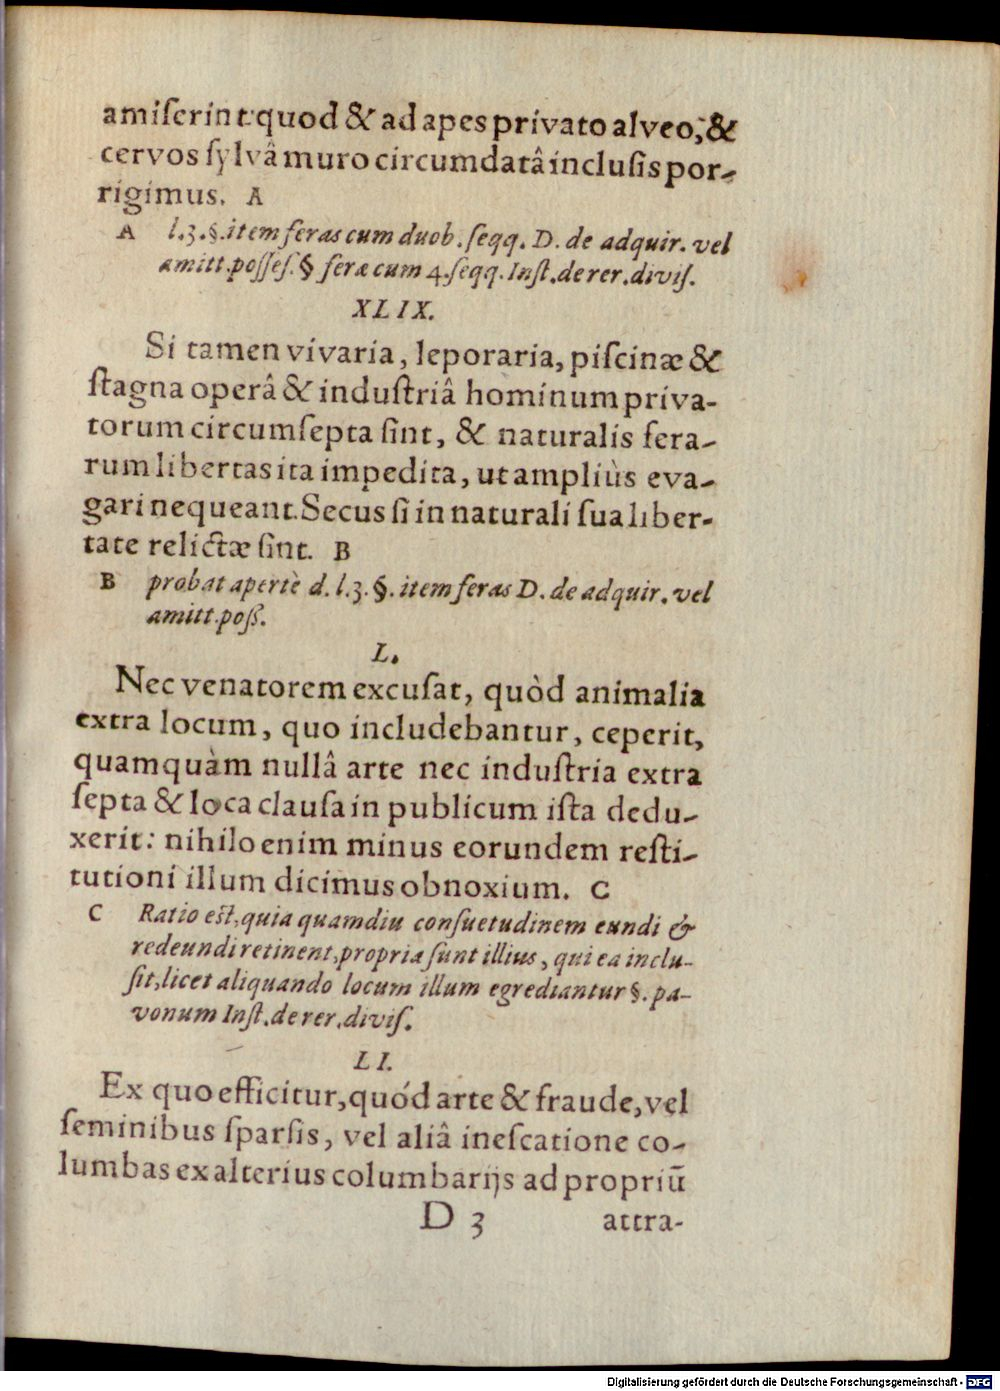 amiſerint: quod & ad apes privato alveo, &
cervos ſylvâ muro circumdatâ incluſis por-
rigimus. A
A l. 3. §. item feras cum duob. ſeqq. D. de adquir. vel
amitt. poſſeſ. § feræ cum 4. ſeqq. Inſt. de rer. diviſ.
XLIX.
Si tamen vivaria, leporaria, piſcinæ &
ſtagna operâ & induſtriâ hominum priva-
torum circumſepta ſint, & naturalis fera-
rum libertas ita impedita, ut ampliùs eva-
gari nequeant. Secus ſi in naturali ſua liber-
tate relictæ ſint. B
B probat apertè d. l. 3. §. item feras D. de adquir. vel
amitt. poß.
L.
Nec venatorem excuſat, quòd animalia
extra locum, quo includebantur, ceperit,
quamquàm nullâ arte nec induſtria extra
ſepta & loca clauſa in publicum iſta dedu-
xerit: nihilo enim minus eorundem reſti-
tutioni illum dicimus obnoxium. C
C Ratio eſt, quia quamdiu conſuetudinem eundi &
redeundi retinent, propria ſunt illius, qui ea inclu-
ſit, licet aliquando locum illum egrediantur §. pa-
vonum Inſt. de rer. diviſ.
LI.
Ex quo efficitur, quód arte & fraude, vel
ſeminibus ſparſis, vel aliâ ineſcatione co-
lumbas ex alterius columbarijs ad propriū
D 3 attra-
Digitalisierung gefördert durch die Deutsche Forschungsgemeinschaft - DFG